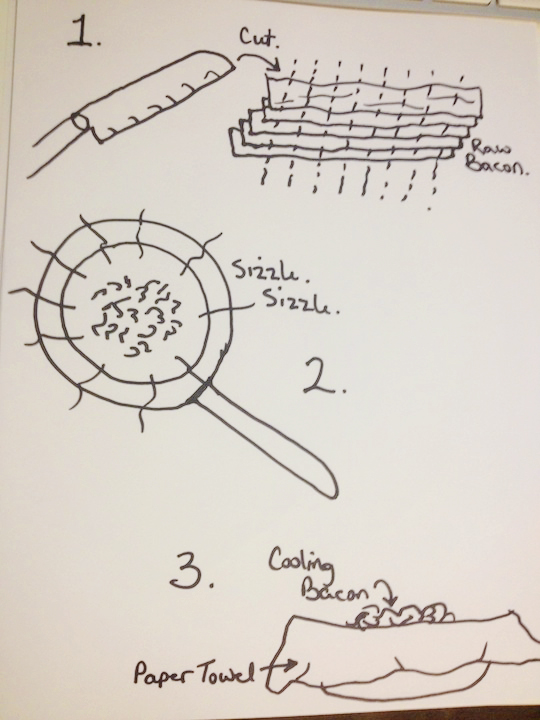 1.
Cut.
Raw
Bacon.
Sizzle.
Sizzle.
2.
3.
Cooling
Bacon
Paper Towel